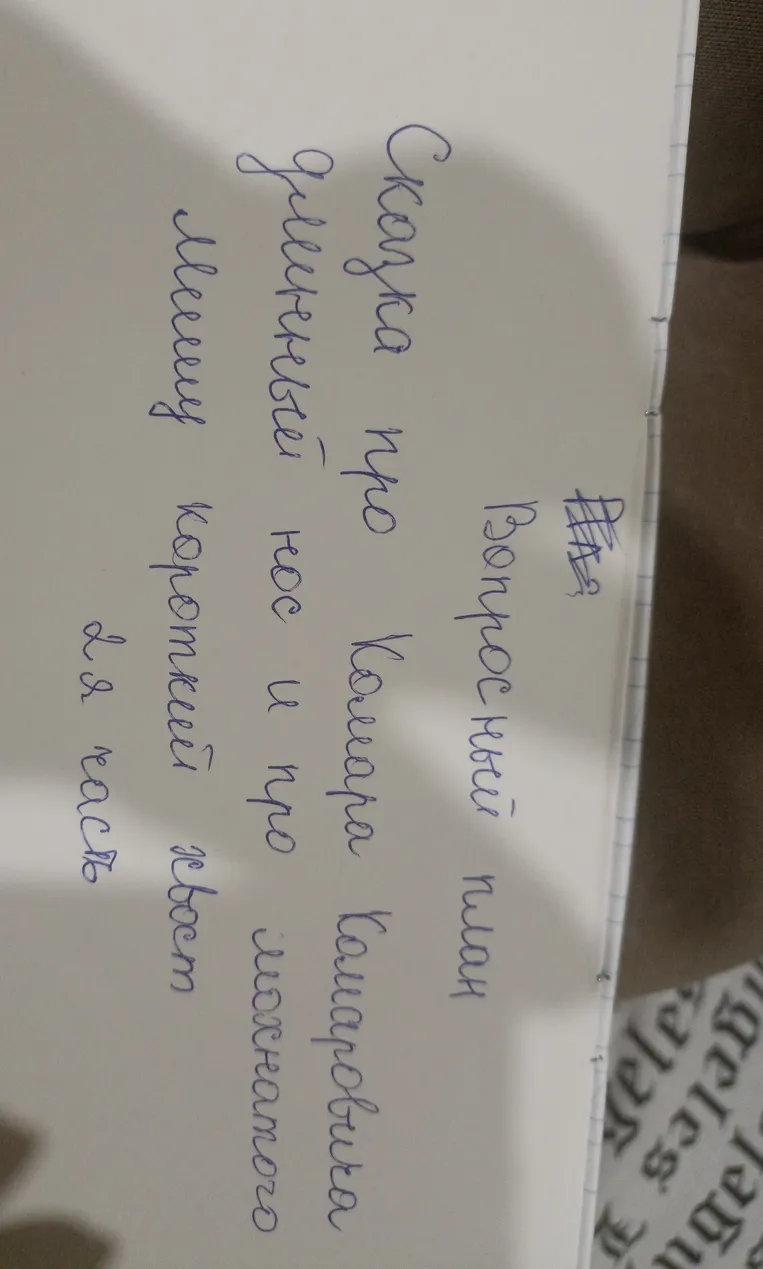 Вопросный план
Сказка про Комара Комаровича
длинный нос и про мохнатого
Мишу короткий хвост
2я часть